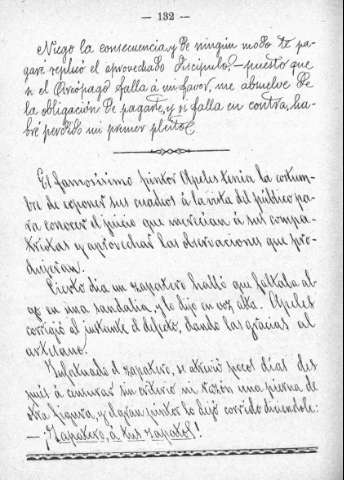 — 132 —
Niego la consecuencia, y de ningún modo te pa-
garé replicó el aprovechado discípulo,—puesto que
si el Areópago falla á mi favor, me absuelve de
la obligación de pagarte, y si falla en contra, ha-
bré perdido mi primer pleito.
El famosísimo pintor Apeles tenía la costum-
bre de exponer sus cuadros á la vista del público pa-
ra conocer el juicio que merecían á sus compa-
triotas y aprovechar las observaciones que pro-
dujeran.
Cierto día un zapatero halló que faltaba al-
go en una sandalia, y lo dijo en voz alta. Apeles
corrigió al instante el defecto, dando las gracias al
artesano.
Infatuado el zapatero, se atrevió pocos días des
pués á censurar sin criterio ni razón una pierna de
otra figura, y el gran pintor lo dejó corrido diciéndole:
— ¡Zapatero, á tus zapatos!